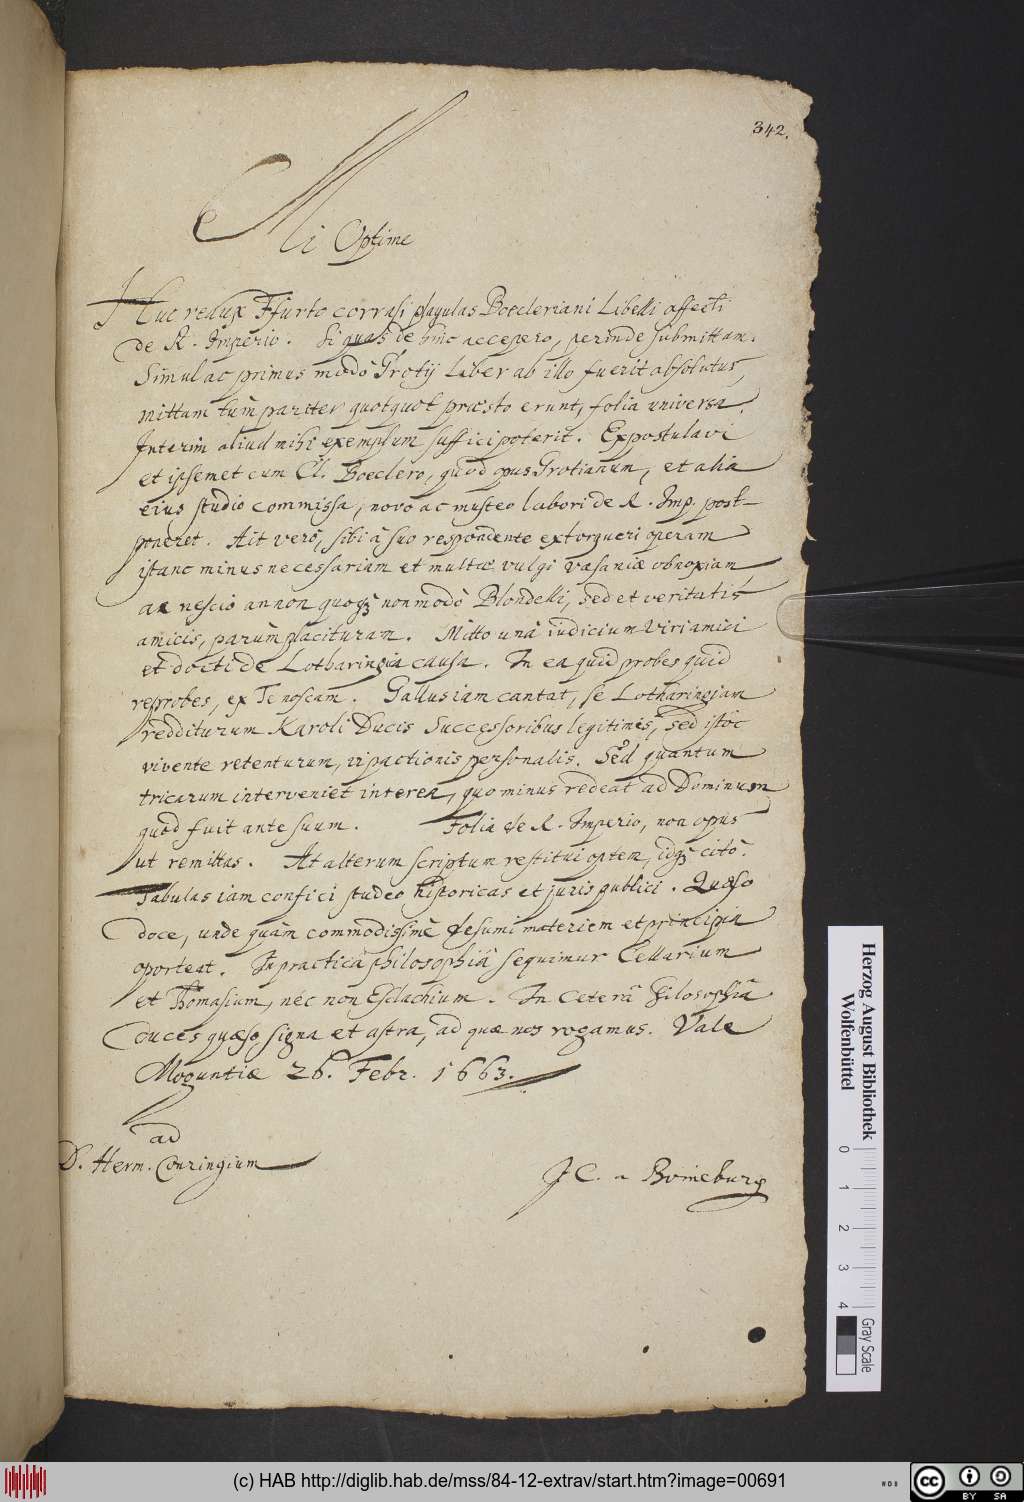 342.
Mi Optime
Huc redux Ffurto corrasi plagulas Boecleriani Libelli affecti
de R. Imperio. Si quas de hinc accepero, perinde submittam.
Simul ac primus modò Grotij Liber ab illo fuerit absolutus,
mittam tùm pariter quotquot praesto erunt, folia universa.
Interim aliud mihi exemplum suffici poterit. Expostulavi
et ipsemet cum Cl. Boeclero, quòd opus Grotianum, et alia
eius studio commissa, novo ac musteo labori de R. Imp. post-
poneret. Ait verò, sibi à suo respondente extorqueri operam
istanc minus necessariam et multae vulgi vasaniae obnoxiam
ac nescio an non quoq; non modò Blondelli, sed et veritatis
amicis, parùm placituram. Mitto unà iudicium Viri amici
et docti de Lotharingia causa. In ea quid probes quid
reprobes, ex Te noscam. Gallus iam cantat, se Lotharingiam
redditurum Karoli Ducis Successoribus legitimis, sed istoc
vivente retenturum, vi pactionis personalis. Sed quantum
tricarum interveniet interea, quo minus redeat ad Dominum
quod fuit ante suum. Folia de R. Imperio, non opus
ut remittas. At alterum scriptum restitui optem, idq; citò.
Tabulas iam confici studeo historicas et juris publici. Quaeso
doce, unde quàm commodissimè desumi materiem et principia
oporteat. In practicâ philosophiâ sequimur Cellarium
et Thomasium, nec non Esclachium. In ceterâ Philosophiâ
duces quaeso signa et astra, ad quae nos rogamus. Vale
Moguntiae 26. Febr. 1663.
ad
D. Herm. Conringium
J C. a Boineburg
Herzog August Bibliothek
Wolfenbüttel
0 1 2 3 4
Gray Scale
(c) HAB http://diglib.hab.de/mss/84-12-extrav/start.htm?image=00691
cc BY SA